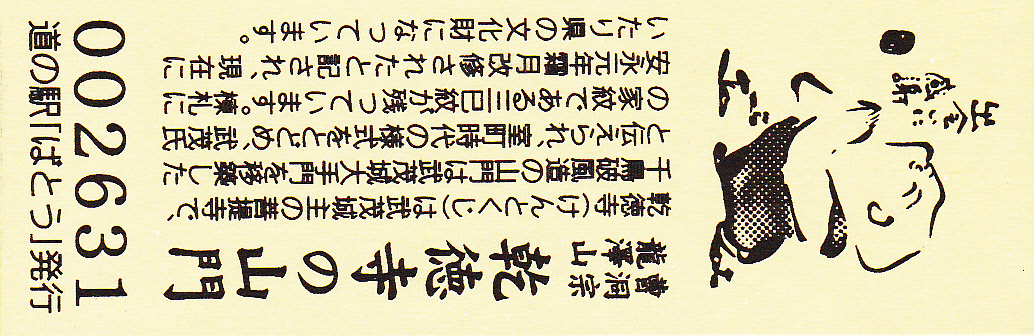 曹洞宗
龍澤山
乾徳寺の山門
乾徳寺(けんとくじ)は武茂城主の菩提寺で、
千鳥破風造の山門は武茂城大手門を移築した
と伝えられ、室町時代の様式をとどめ、武茂氏
の家紋である三巴紋が残っています。棟札に
安永元年霜月改修されたと記され、現在に
いたり県の文化財になっています。
出会いに
感謝
002631
道の駅「ばとう」発行